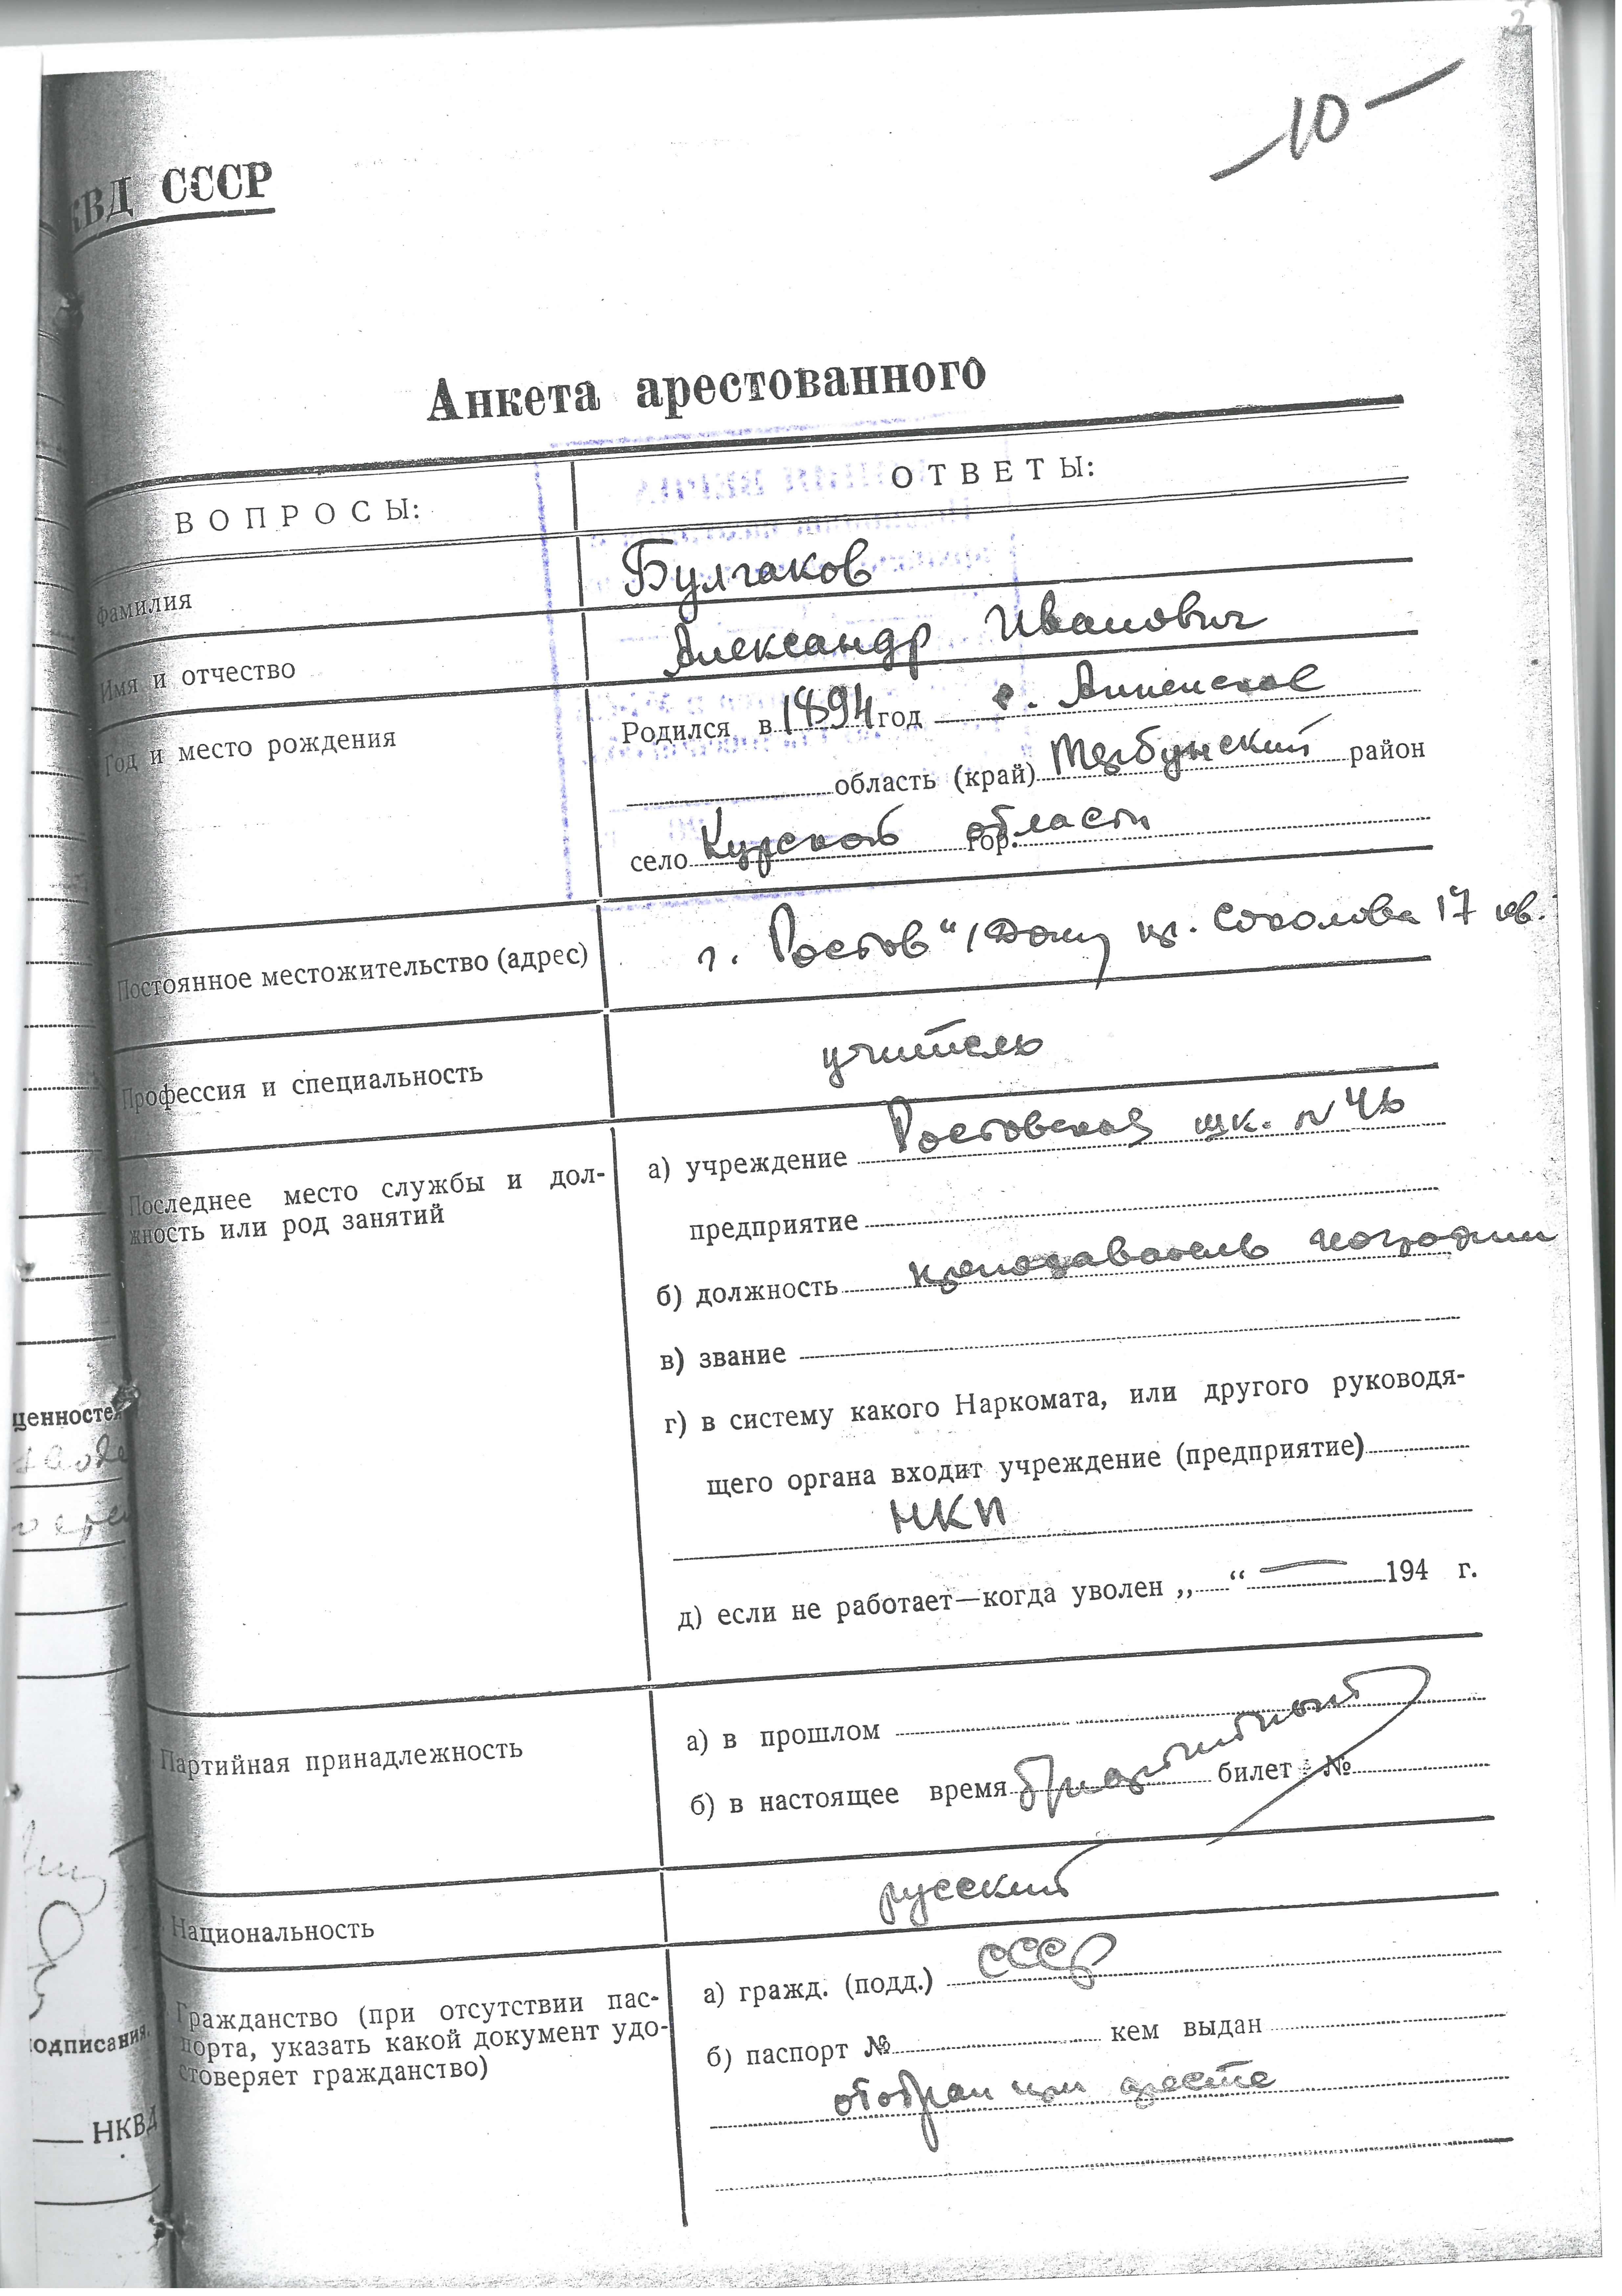 -10-
КВД СССР
Анкета арестованного
ВОПРОСЫ:
ОТВЕТЫ:
Фамилия
Булгаков
Имя и отчество
Александр Иванович
Год и место рождения
Родился в 1894 год с.
область (край) Тербунский район
село Курской области гор.
Постоянное местожительство (адрес)
г. Ростов н/Дону пр. Соколова 17 кв.
Профессия и специальность
учитель
Последнее место службы и дол-
жность или род занятий
а) учреждение Ростовская шк. N 46
предприятие
б) должность преподаватель
в) звание
г) в систему какого Наркомата, или другого руководя-
щего органа входит учреждение (предприятие)
НКП
д) если не работает—когда уволен „ “ — 194 г.
Партийная принадлежность
а) в прошлом
б) в настоящее время беспартийный билет № 
Национальность
русский
Гражданство (при отсутствии пас-
порта, указать какой документ удо-
стоверяет гражданство)
а) гражд. (подд.) СССР
б) паспорт № кем выдан
отобран при аресте
ценностей
одписания.
НКВД